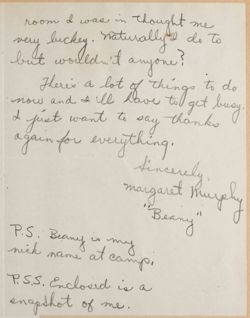 room I was in thought me
very luckey. Naturally I do to
but wouldn't anyone?
There's a lot of things to do
now and I'll have to get busy.
I just want to say thanks
again for everything.
Sincerely,
Margaret Murphy
"Beany"
P.S. Beany is my
nick name at camp.
P.S.S. Enclosed is a
snapshot of me.